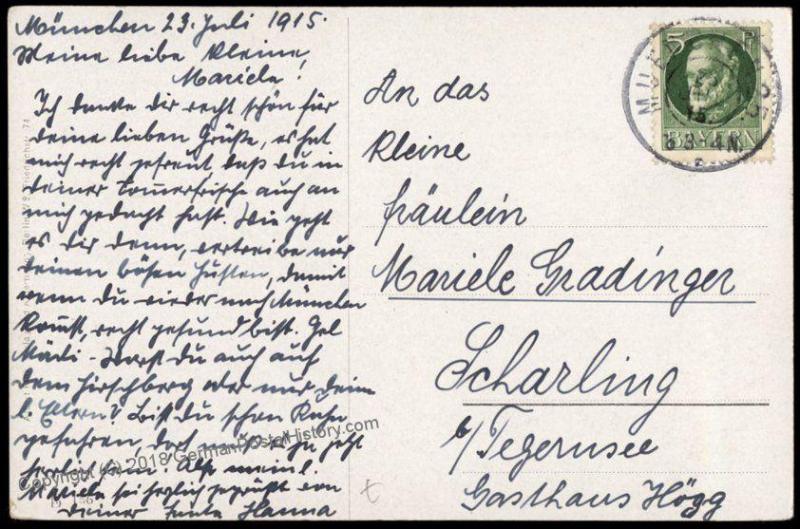 München 23. Juli 1915.
Meine liebe kleine
Mariele!
Ich danke dir recht schön für
deine lieben Grüße, es hat
mich recht gefreut, daß du in
deiner Sommerfrische auch an
mich gedacht hast. Wie geht
es dir denn, vertreibe nur
deinen bösen Husten, damit
wenn du wieder nach München
kommst, recht gesund bist. Gel
Mädi - Warst du auch auf
dem Hirschberg oder nur deine
l. Eltern? Bist du schon Kahn
gefahren, doch muß es ja jetzt
herrlich sein. Also mein l.
Mariele sei herzlich gegrüßt von
deiner Tante Hanna
An das
kleine
Fräulein
Mariele Gradinger
Scharling
b/Tegernsee
Gasthaus Högg
5 P
BAYERN
15
8 3-4N.
Copyright (C) 2018 GermanPostalHistory.com